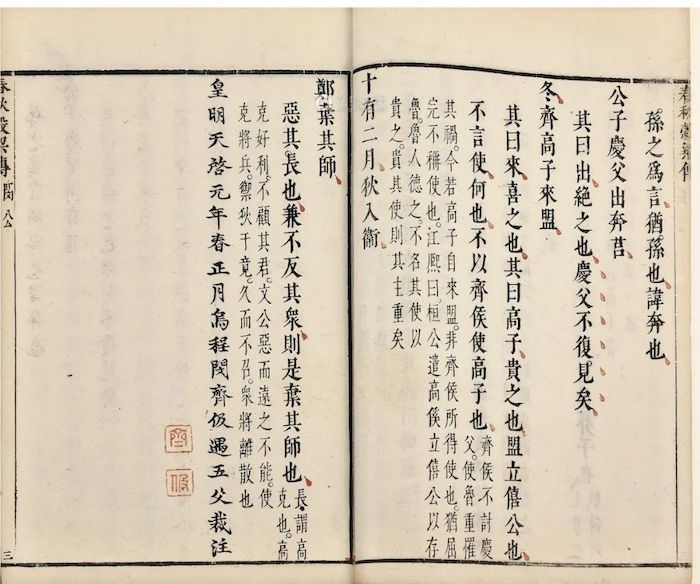 春秋穀梁傳
孫之爲言猶孫也諱奔也
公子慶父出奔莒
其曰出絶之也慶父不復見矣
冬齊高子來盟
其曰來喜之也其曰高子貴之也盟立僖公也
不言使何也不以齊侯使高子也
齊侯不討慶
父。使魯重罹
其禍。今若高子自來盟。非齊侯所得使也。猶屈
完不稱使也。江熙曰。桓公遣高傒立僖公以存
魯。魯人德之。不名其使以
貴之。貴其使則其主重矣
十有二月狄入衞
鄭棄其師
惡其長也兼不反其衆則是棄其師也
長。謂高
克也。高
克好利。不顧其君。文公惡而遠之不能。使
克將兵。禦狄于竟。久而不召。衆將離散也
皇明天啓元年春正月烏程閔齊伋遇五父裁注
齊
伋
春秋穀梁傳
閔公
三